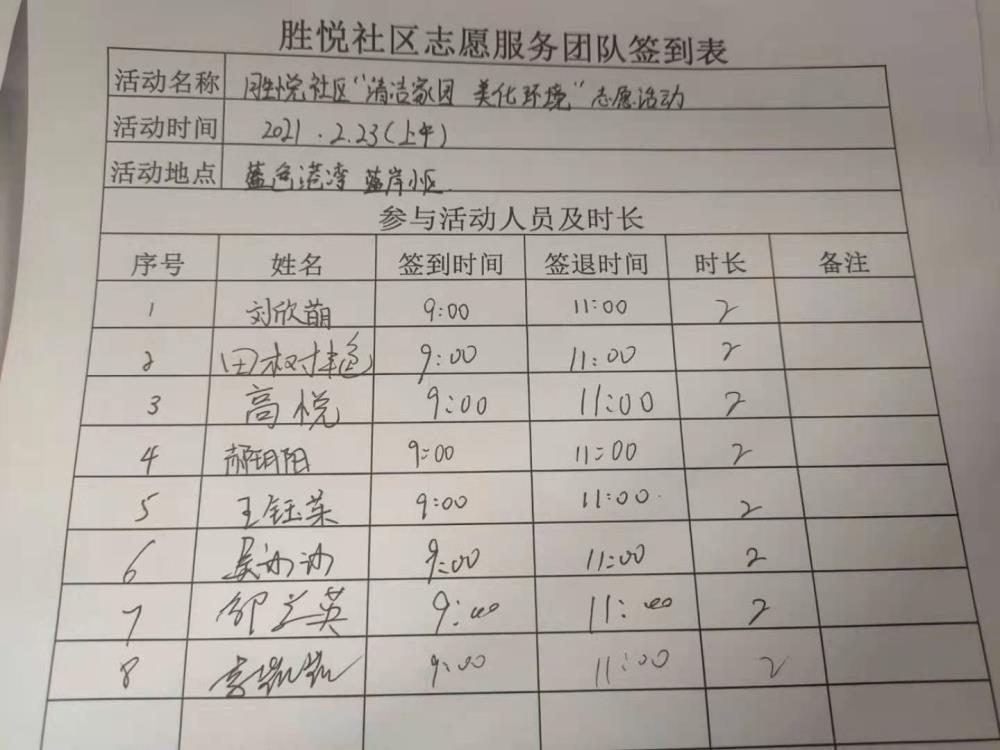 胜悦社区志愿服务团队签到表
活动名称 胜悦社区“清洁家园 美化环境”志愿活动
活动时间 2021.2.23(上午)
活动地点 蓝色港湾 蓝岸小区
参与活动人员及时长
序号 姓名 签到时间 签退时间 时长 备注
1 刘欣萌 9:00 11:00 2
2 9:00 11:00 2
3 高悦 9:00 11:00 2
4 郝明阳 9:00 11:00 2
5 王钰荣 9:00 11:00 2
6 9:00 11:00 2
7 邹兰英 9:00 11:00 2
8 9:00 11:00 2